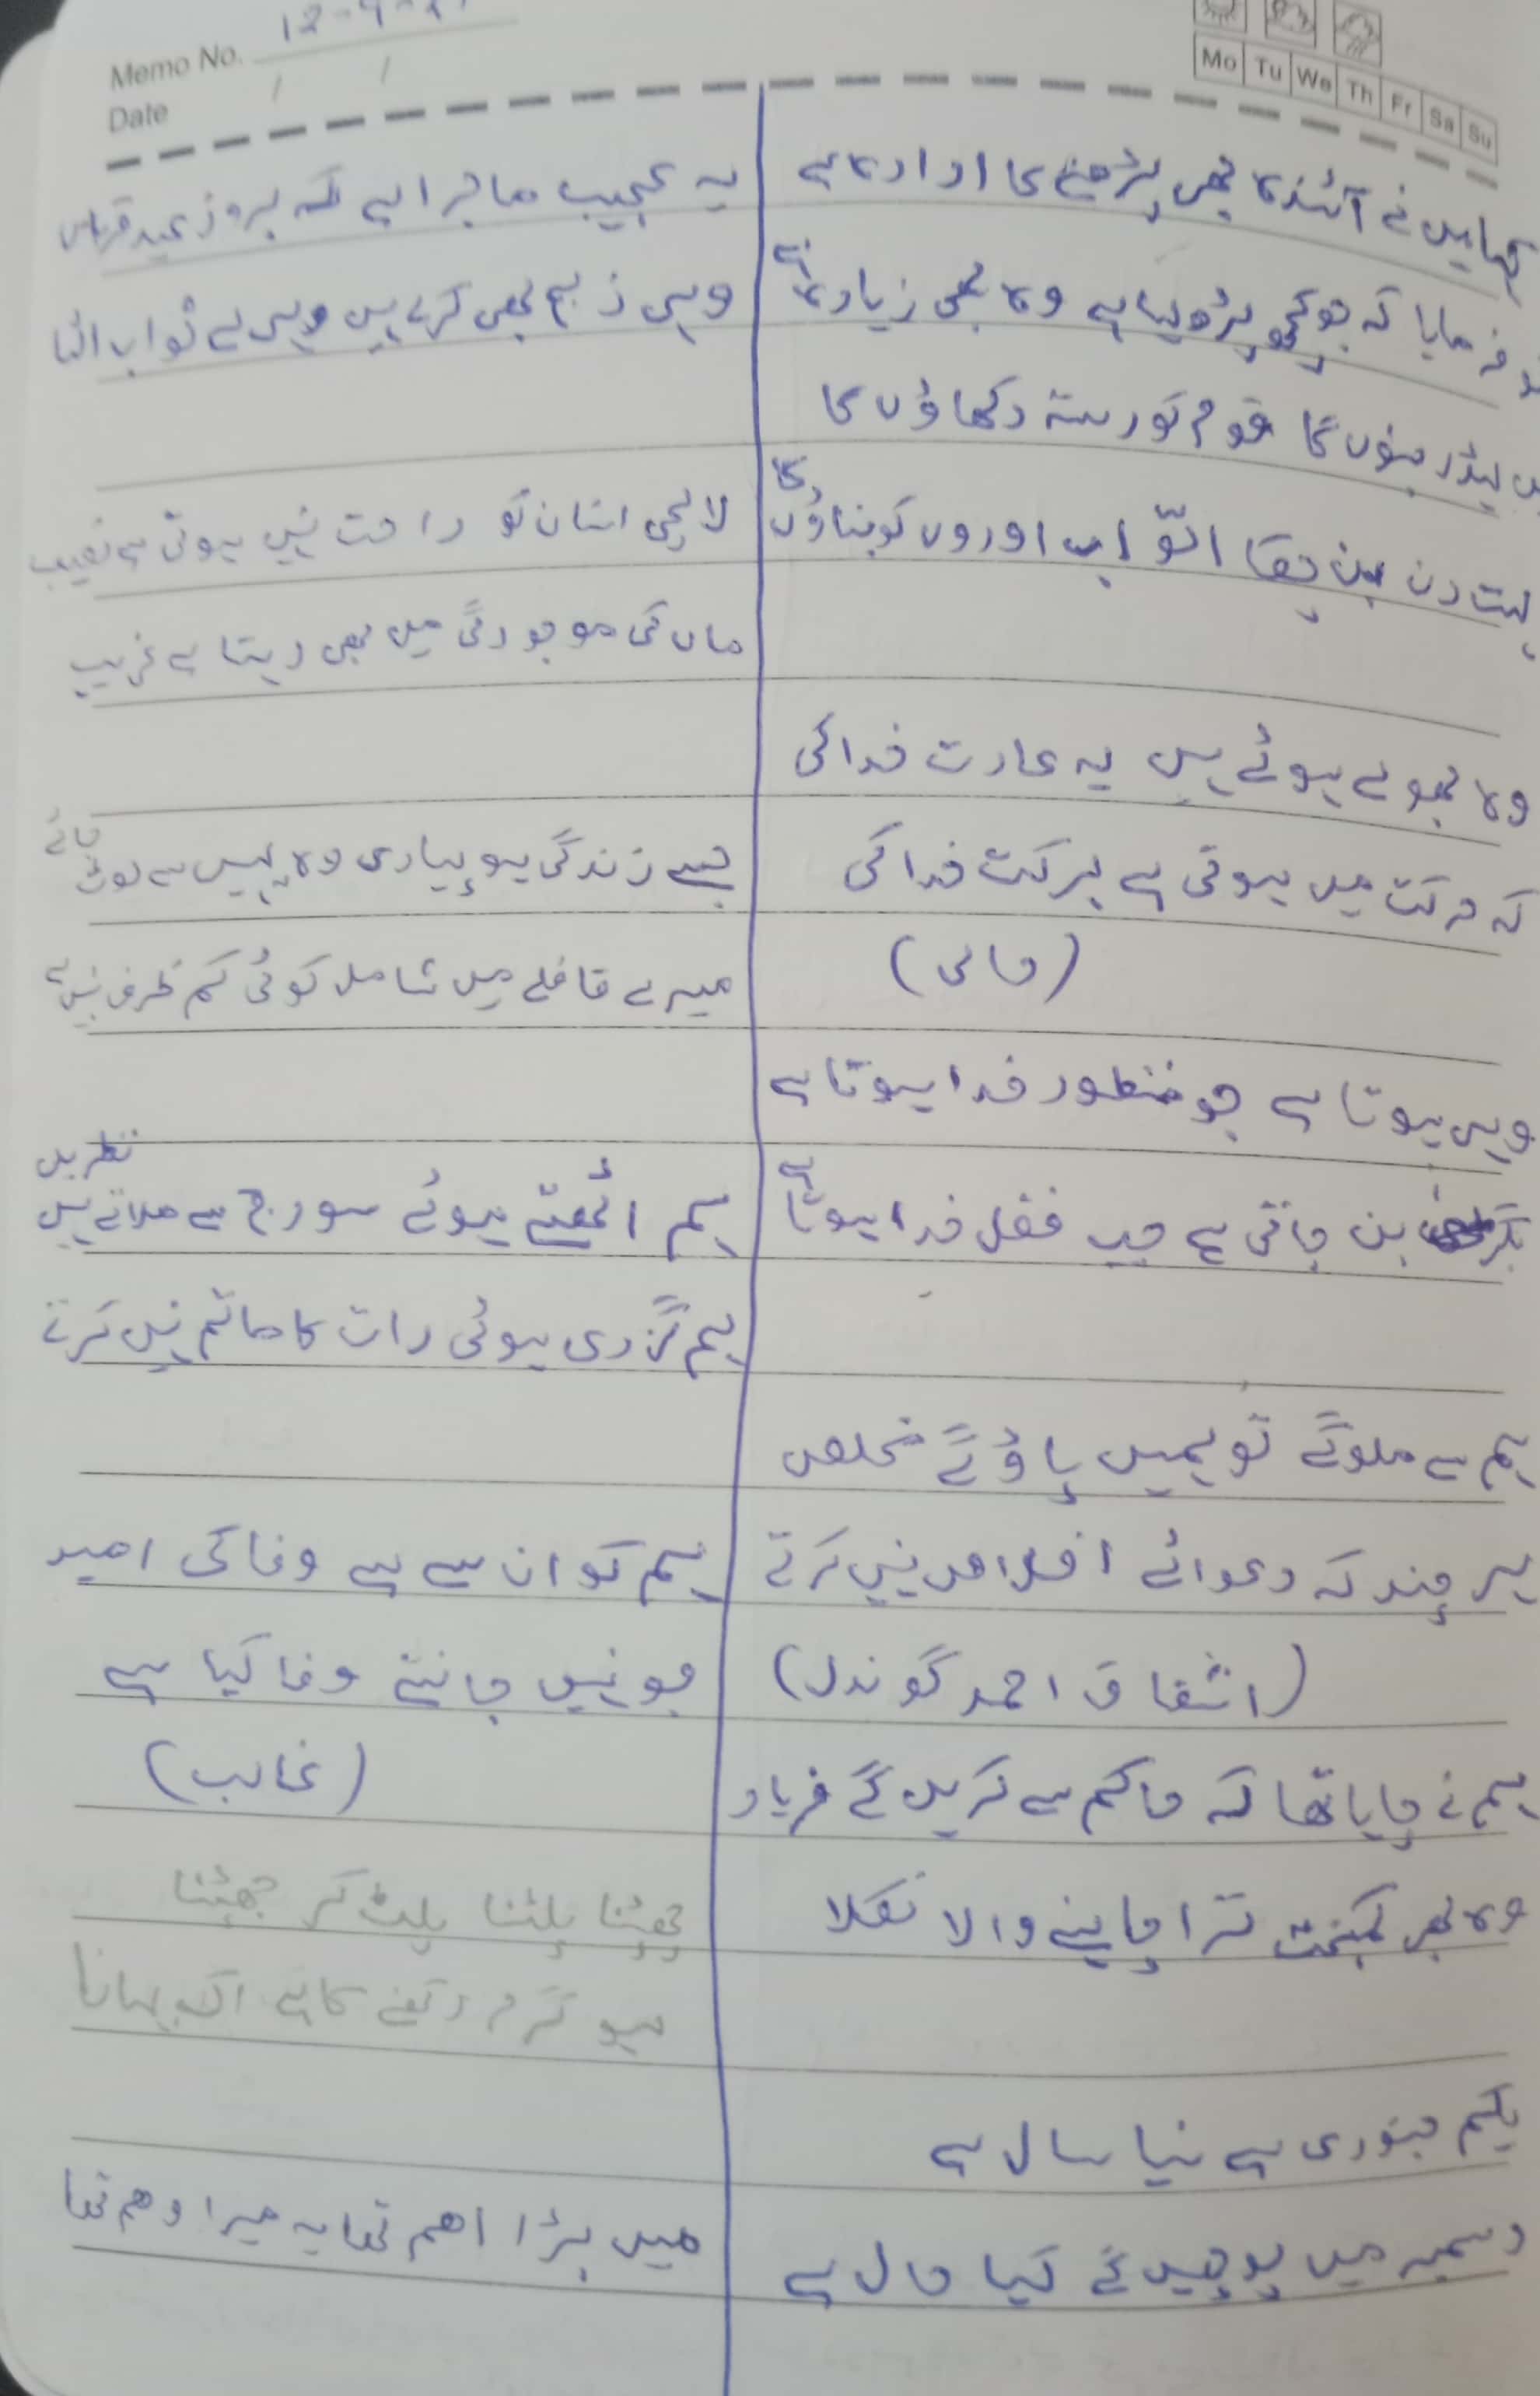 Memo No. 12-9-21
Date / /
Mo Tu We Th Fr Sa Su
کہا میں نے آئندہ بھی پڑھنے کا ارادہ ہے
فرمایا کہ جو کچھ پڑھ لیا ہے وہ بھی زیادہ ہے
لیڈر بنوں گا قوم کو رستہ دکھاؤں گا
بہت دن بن چکا الّو اب اوروں کو بناؤں گا
وہ بھولے ہوئے ہیں یہ عادت خدا کی
کہ حرکت میں ہوتی ہے برکت خدا کی
(حالی)
وہی ہوتا ہے جو منظور خدا ہوتا ہے
بن جاتی ہے جب فضل خدا ہوتا ہے
ہم سے ملو گے تو ہمیں پاؤ گے مخلص
ہر چند کہ دعوائے اخلاص نہیں کرتے
(اشفاق احمد گوندل)
ہم نے چاہا تھا کہ حاکم سے کریں گے فریاد
وہ بھی کمبخت ترا چاہنے والا نکلا
یکم جنوری ہے نیا سال ہے
دسمبر میں پوچھیں گے کیا حال ہے
یہ عجیب ماجرا ہے کہ بروز عید قرباں
وہی ذبح بھی کرے ہیں وہی لے ثواب الٹا
لالچی انسان کو راحت نہیں ہوتی ہے نصیب
ماں کی موجودگی میں بھی رہتا ہے غریب
جسے زندگی ہو پیاری وہ یہیں سے لوٹ جائے
میرے قافلے میں شامل کوئی کم ظرف نہیں ہے
ہم اٹھتے ہوئے سورج سے ملاتے ہیں نظریں
ہم گزری ہوئی رات کا ماتم نہیں کرتے
ہم کو ان سے ہے وفا کی امید
جو نہیں جانتے وفا کیا ہے
(غالب)
جھپٹنا پلٹنا پلٹ کر جھپٹنا
لہو گرم رکھنے کا ہے اک بہانا
میں بڑا اھم تھا یہ میرا وھم تھا